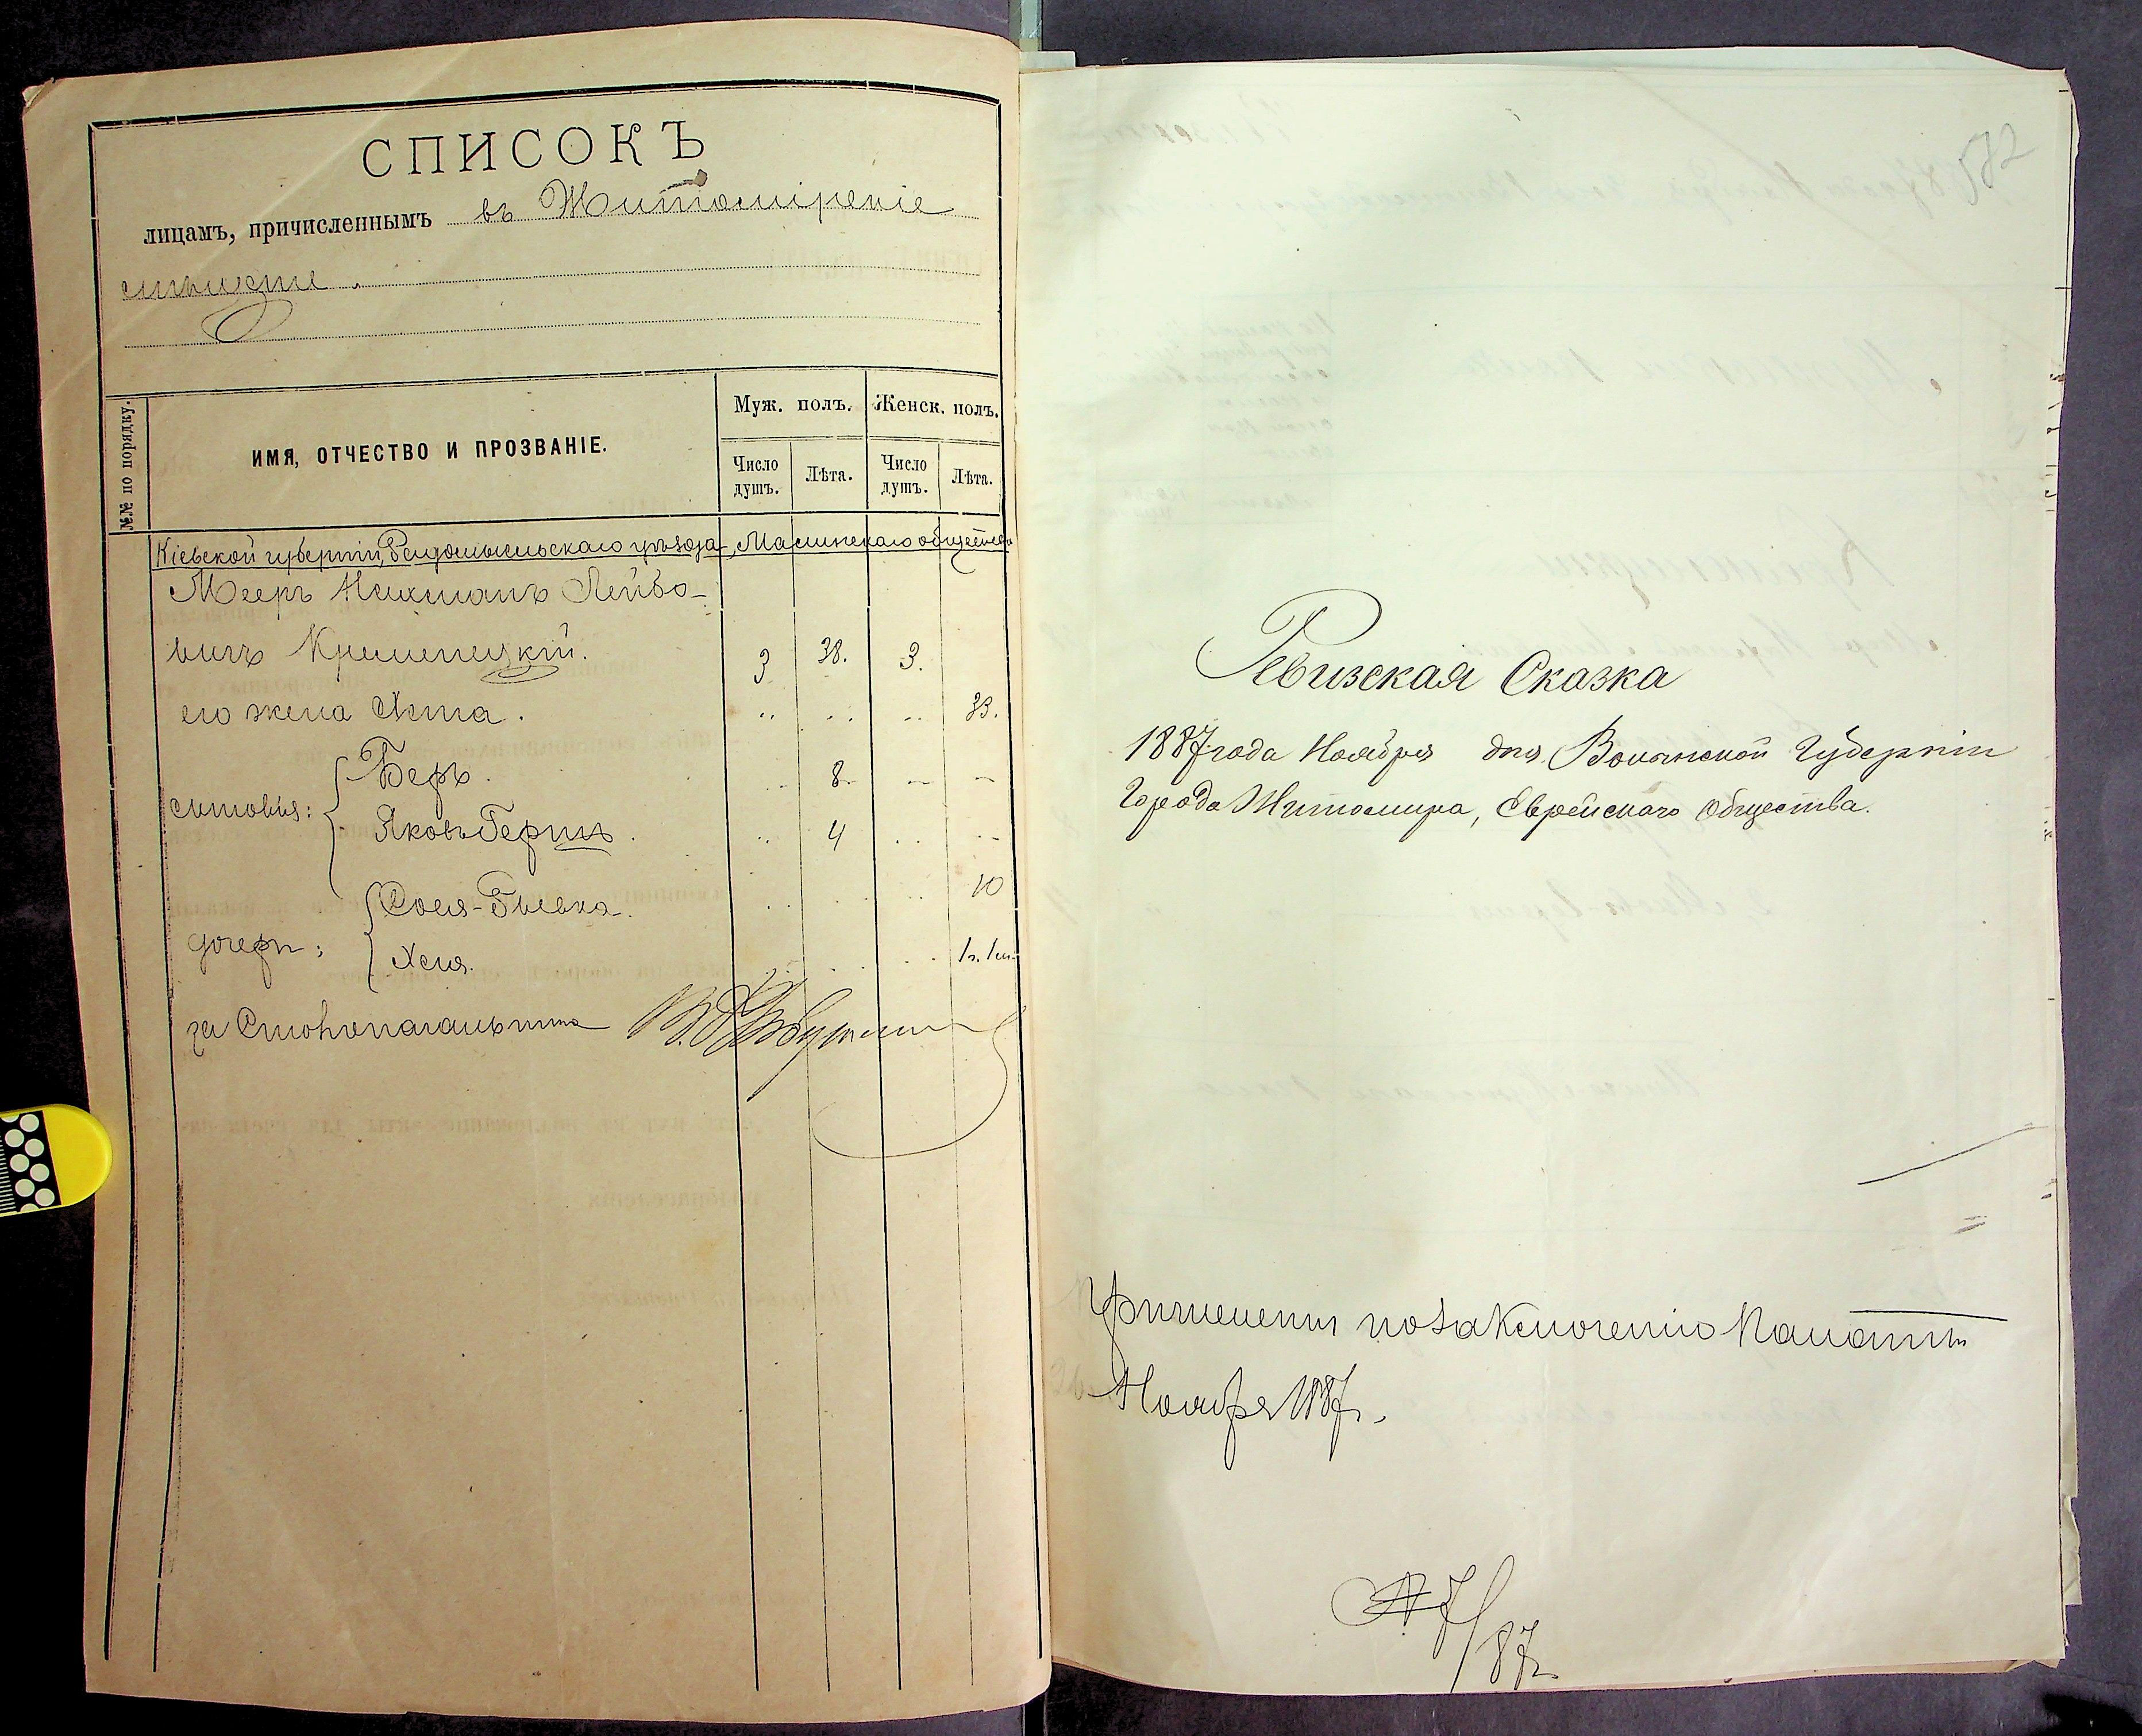 СПИСОКЪ
лицамъ, причисленнымъ въ Житомірскіе
мѣщане.
№№ по порядку.
ИМЯ, ОТЧЕСТВО И ПРОЗВАНІЕ.
Муж. полъ.
Женск. полъ.
Число душъ.
Лѣта.
Число душъ.
Лѣта.
Кіевской губерніи, Радомысльскаго уѣзда, Малинскаго общества
Мееръ Нахманъ Лейбо-
вичъ Кременецкій. 3 38. 3.
его жена 33.
сыновья:
Беръ. 8
Яковъ Гершъ. 4
дочери:
Сося- 10
Хая. 1г. 1м.
за Столоначальника
582
Ревизская Сказка
1887 года Ноября дня, Волынской Губерніи
Города Житомира, Еврейскаго Общества.
Причислены по заключенію Палаты
Ноября 1887г.
№ 7/87г.